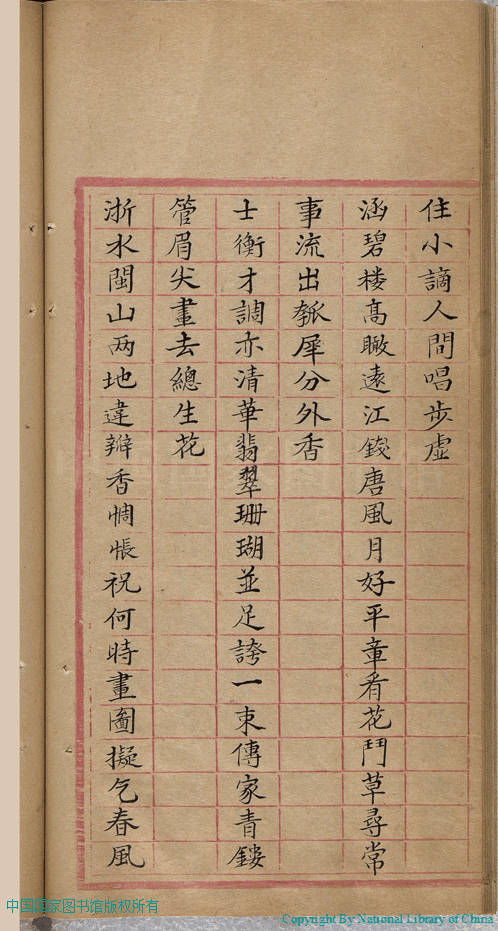 住小謫人間唱步虛
涵碧楼髙瞰遠江錢唐風月好平章看花鬥草尋常
事流出瓠犀分外香
士衡才調亦清華翡翠珊瑚並足誇一束傳家青鏤
管眉尖畫去總生花
浙水閩山两地違瓣香惆悵祝何時畫圖擬乞春風
中国国家图书馆版权所有
Copyright By National Library of China